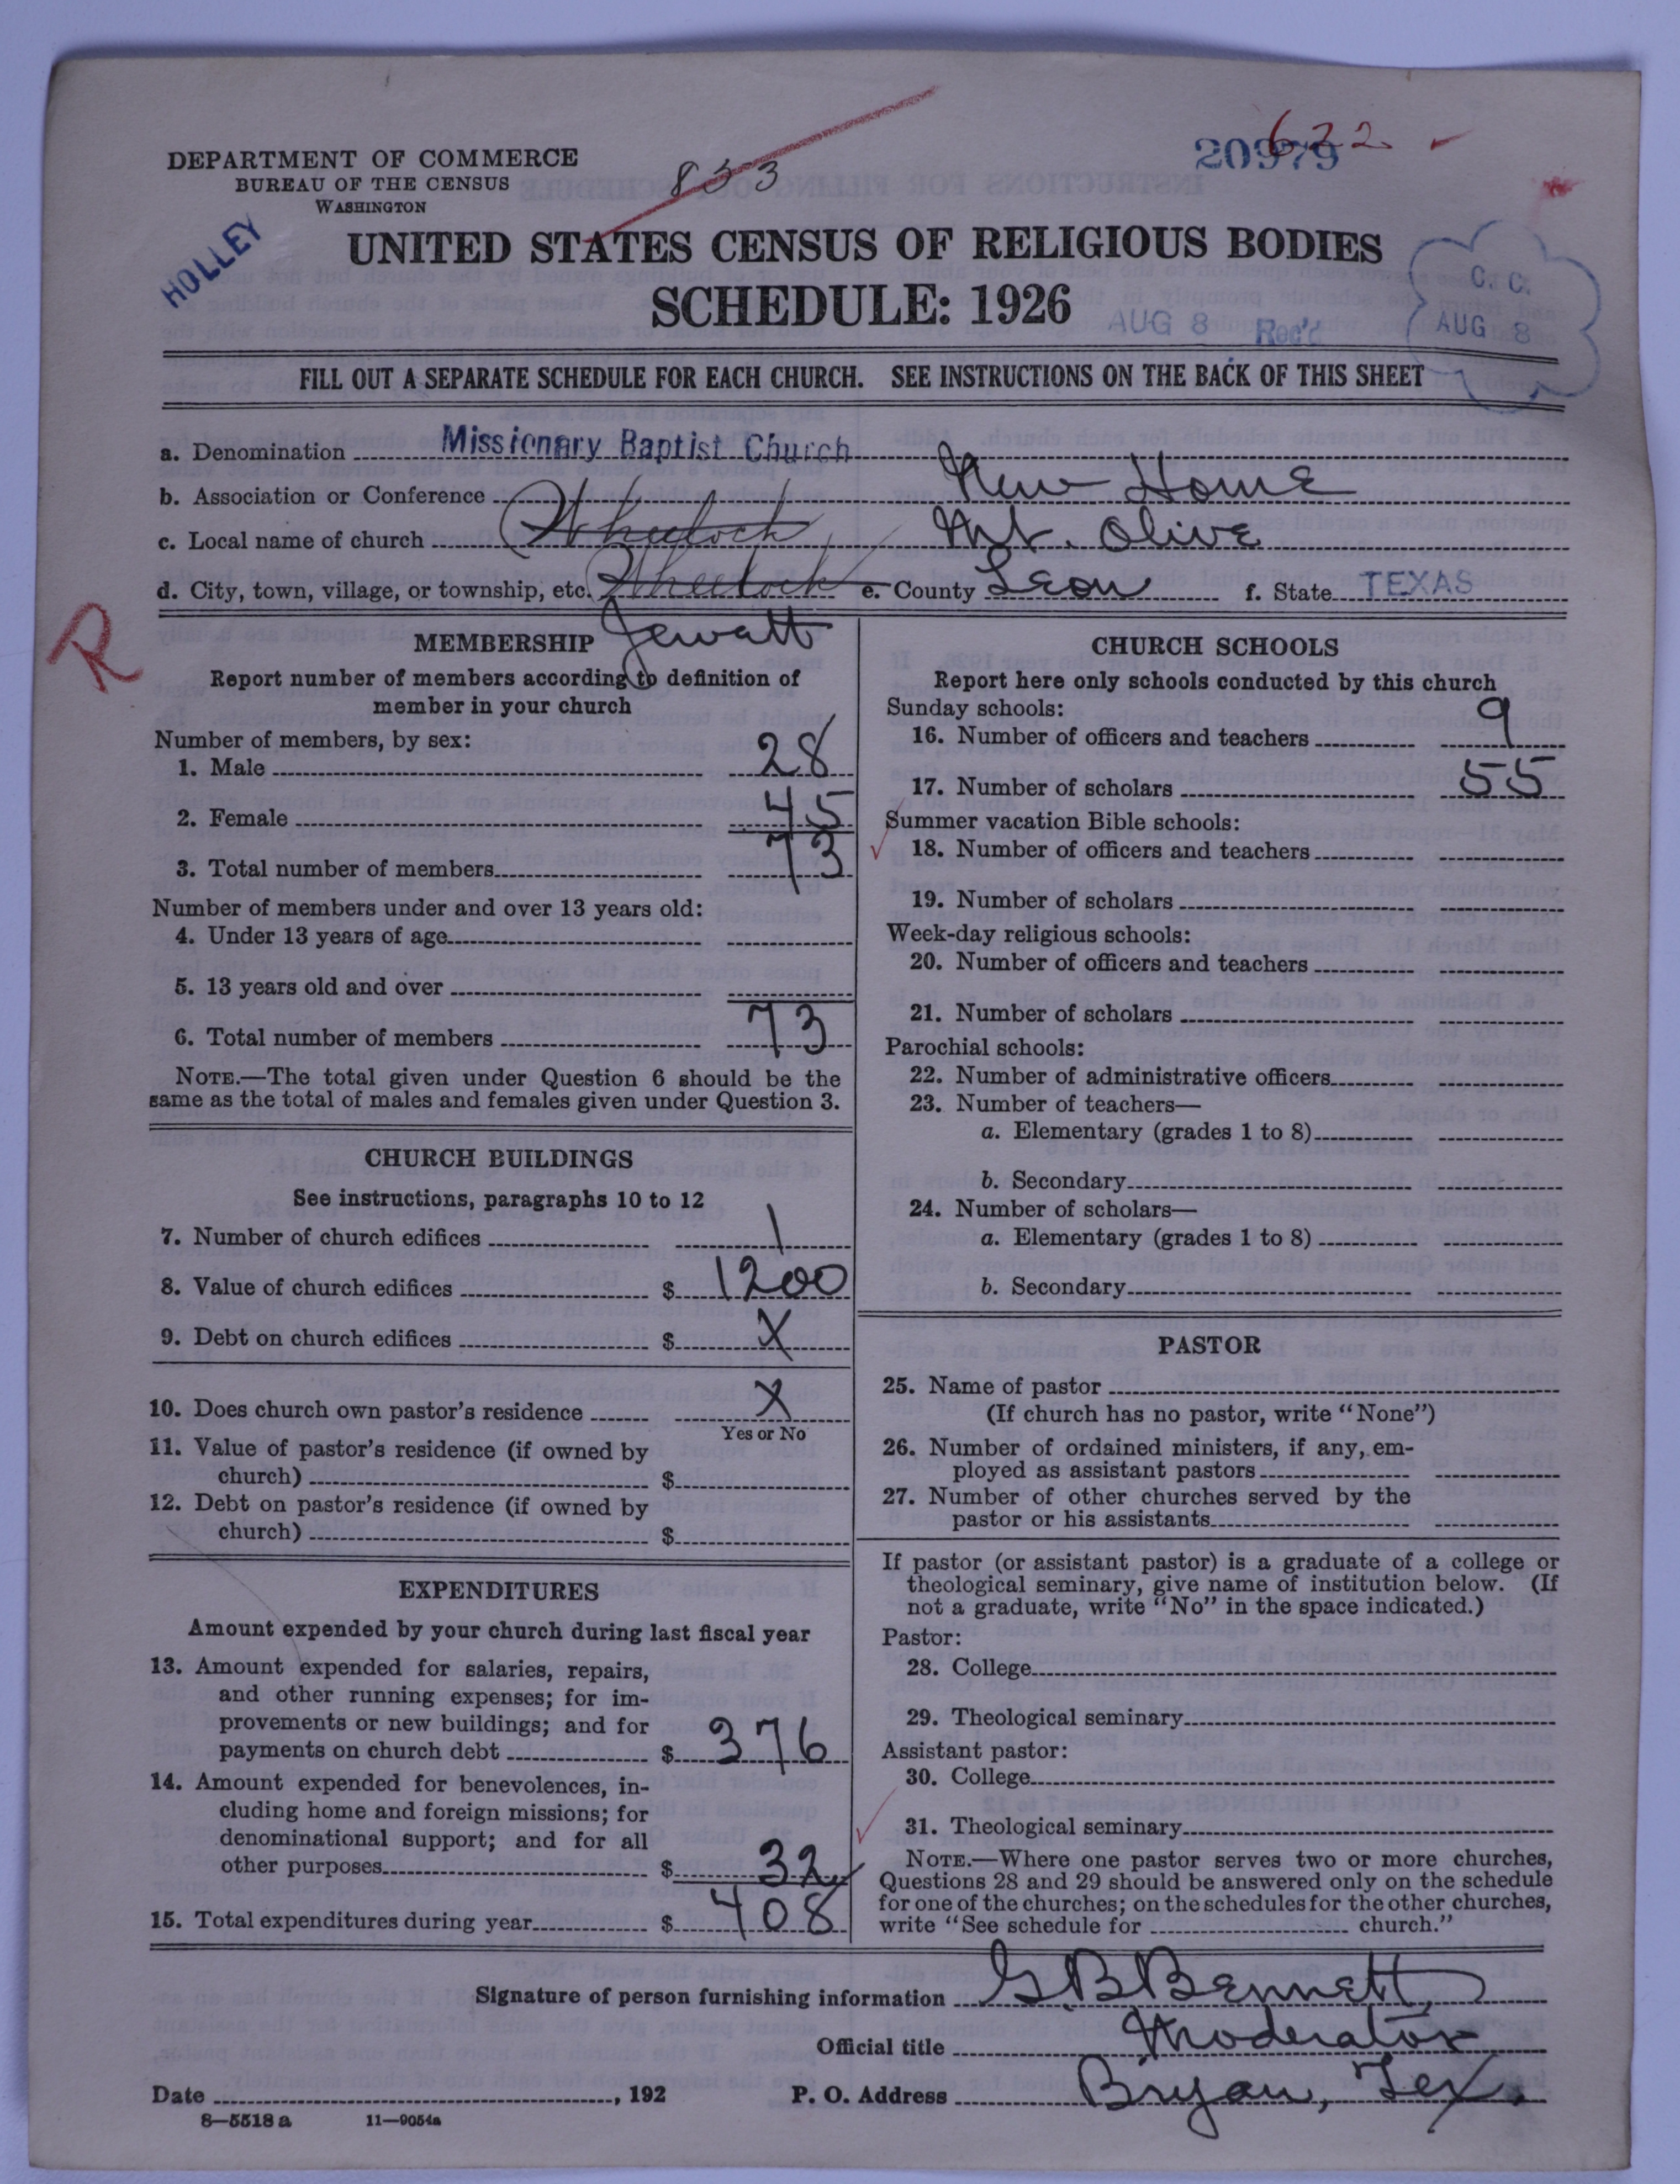 DEPARTMENT OF COMMERCE
BUREAU OF THE CENSUS
WASHINGTON
HOLLEY
833
20979
632
UNITED STATES CENSUS OF RELIGIOUS BODIES
SCHEDULE: 1926
AUG 8 Rec'd
C. C.
AUG 8
FILL OUT A SEPARATE SCHEDULE FOR EACH CHURCH. SEE INSTRUCTIONS ON THE BACK OF THIS SHEET
a. Denomination Missionary Baptist Church
b. Association or Conference New Home
c. Local name of church Wheelock Mt. Olive
d. City, town, village, or township, etc. Wheelock e. County Leon f. State TEXAS
Jewatt
R
MEMBERSHIP
Report number of members according to definition of
member in your church
Number of members, by sex:
1. Male 28
2. Female 45
3. Total number of members 73
Number of members under and over 13 years old:
4. Under 13 years of age
5. 13 years old and over
6. Total number of members 73
NOTE.—The total given under Question 6 should be the
same as the total of males and females given under Question 3.
CHURCH BUILDINGS
See instructions, paragraphs 10 to 12
7. Number of church edifices 1
8. Value of church edifices $ 1200
9. Debt on church edifices $ X
10. Does church own pastor's residence X
Yes or No
11. Value of pastor's residence (if owned by
church) $
12. Debt on pastor's residence (if owned by
church) $
EXPENDITURES
Amount expended by your church during last fiscal year
13. Amount expended for salaries, repairs,
and other running expenses; for im-
provements or new buildings; and for
payments on church debt $ 376
14. Amount expended for benevolences, in-
cluding home and foreign missions; for
denominational support; and for all
other purposes $ 32
15. Total expenditures during year $ 408
CHURCH SCHOOLS
Report here only schools conducted by this church
Sunday schools:
16. Number of officers and teachers 9
17. Number of scholars 55
Summer vacation Bible schools:
18. Number of officers and teachers
19. Number of scholars
Week-day religious schools:
20. Number of officers and teachers
21. Number of scholars
Parochial schools:
22. Number of administrative officers
23. Number of teachers—
a. Elementary (grades 1 to 8)
b. Secondary
24. Number of scholars—
a. Elementary (grades 1 to 8)
b. Secondary
PASTOR
25. Name of pastor
(If church has no pastor, write "None")
26. Number of ordained ministers, if any, em-
ployed as assistant pastors
27. Number of other churches served by the
pastor or his assistants
If pastor (or assistant pastor) is a graduate of a college or
theological seminary, give name of institution below. (If
not a graduate, write "No" in the space indicated.)
Pastor:
28. College
29. Theological seminary
Assistant pastor:
30. College
31. Theological seminary
NOTE.—Where one pastor serves two or more churches,
Questions 28 and 29 should be answered only on the schedule
for one of the churches; on the schedules for the other churches,
write "See schedule for church."
Signature of person furnishing information G B Bennett,
Official title Moderator
Date , 192 P. O. Address Bryan, Tex.
8—5518 a 11—9054a